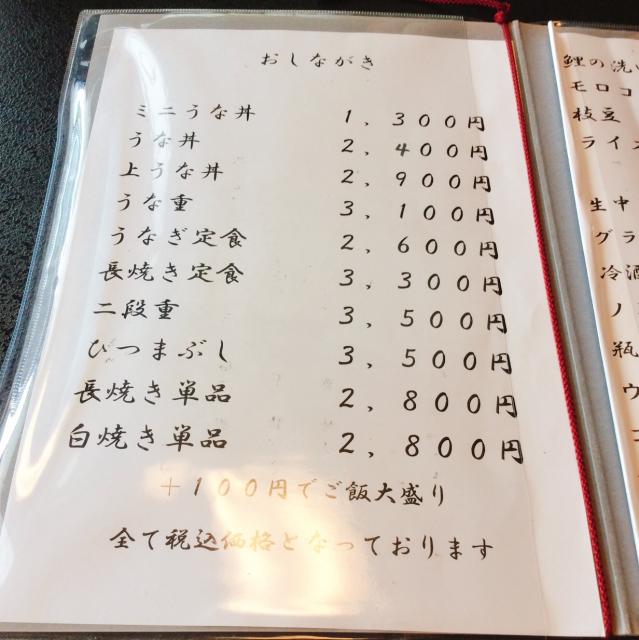 おしながき
ミニうな丼 1,300円
うな丼 2,400円
上うな丼 2,900円
うな重 3,100円
うなぎ定食 2,600円
長焼き定食 3,300円
二段重 3,500円
ひつまぶし 3,500円
長焼き単品 2,800円
白焼き単品 2,800円
+100円でご飯大盛り
全て税込価格となっております
鯉の洗い
モロコ
枝豆
ライス
生中
グラ
冷酒
ノ
瓶
ウ